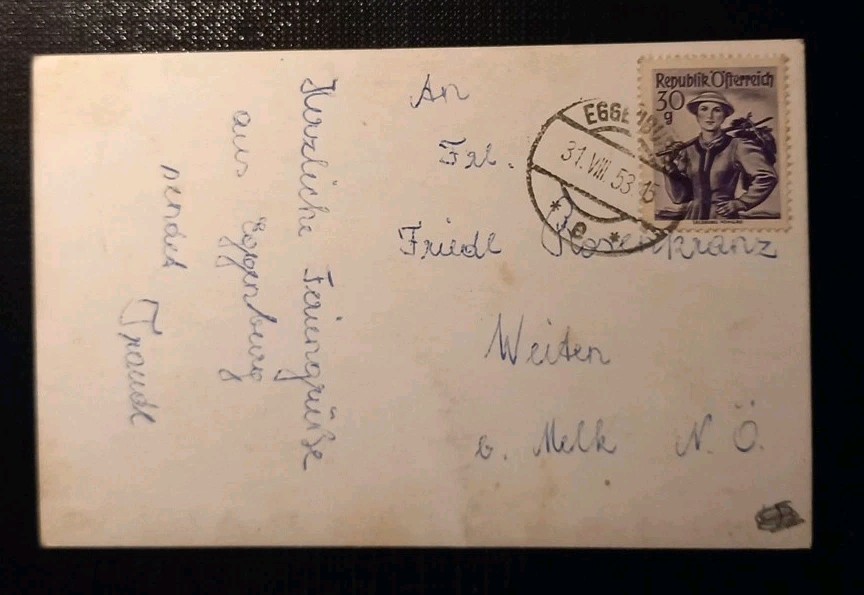 Herzliche Feriengrüße
aus Eggenburg
sendet Traudl
An
Frl.
Friedl Rosenkranz
Weiten
b. Melk N. Ö.
Republik Österreich
30
g
EGGENBURG
31. VIII 53 15
* e *